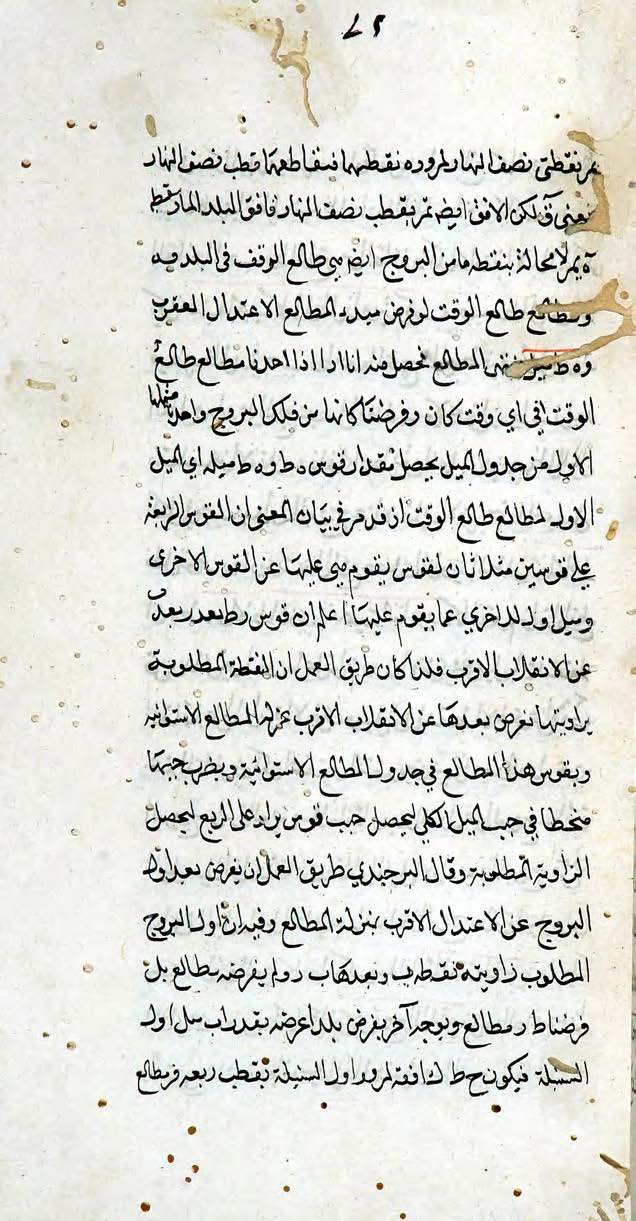 ٤٥
يمر بقطبي نصف النهار لمروره بقطبيهما فتقاطعهما قطب نصف النهار
يعني ق لكن الافق ايضا تمر بقطب نصف النهار فافق البلد المار بنقطة
ة يمر لا محالة بنقطة ما من البروج ايضا هي طالع الوقت في البلد فيه
طالع الوقت لو فرض مبدء المطالع الاعتدال القريب
المطالع تحصل منه انا اذا اخذنا مطالع طالع
الوقت في اي وقت كان وفرضناها كانها من فلك البروج واخذنا ميلها
الاول من جدول الميل يحصل مقدار قوس ه ط و ه ط ميله اي الميل
الاول لمطالع طالع الوقت اذ قد مر في بيان المعنى ان القوس الرابعة
على قوسين مثلاثان لقوس يقوم هي عليها عن القوس الاخرى
وميل اول للاخري عما يقوم عليها اعلم ان قوس رط بعد ربعه
عن الانقلاب الاقرب فلذا كان طريق العمل ان النقطة المطلوبة
يراويتها نعرض بعدها عن الانقلاب الاقرب بمنزلة المطالع الاستوائية
وبقوس هذه المطالع في جدول المطالع الاستوائية ويضرب جيبها
منحطا في جيب الميل الكلي ليحصل جيب قوس يزاد على الربع ليحصل
الزاوية المطلوبة وقال البرجندي طريق العمل ان يفرض بعد اول
البروج عن الاعتدال الاقرب بمنزلة المطالع وفيه ان اول البروج
المطلوب زاويته نقطة ب وبعدها ب ر ولم يفرضه مطالع بل
فرضنا ط ر مطالع وبوجه آخر يفرض بلد اعرضه بقدر اب ميل اول
السنبلة فيكون ح ط ك افقه لمرور اول السنبلة بقطب ربعه فر مطالع